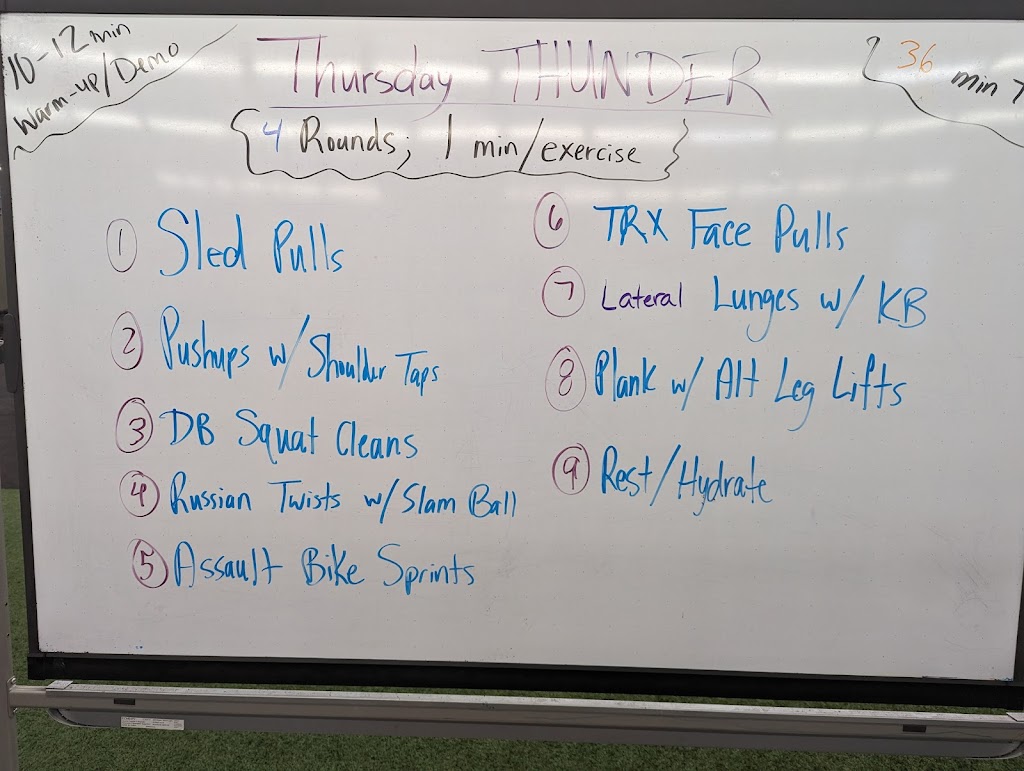 10-12 min
Warm-up/Demo
Thursday THUNDER
36
min
4 Rounds; 1 min/exercise
1 Sled Pulls
2 Pushups w/ Shoulder Taps
3 DB Squat Cleans
4 Russian Twists w/ Slam Ball
5 Assault Bike Sprints
6 TRX Face Pulls
7 Lateral Lunges w/ KB
8 Plank w/ Alt Leg Lifts
9 Rest/Hydrate